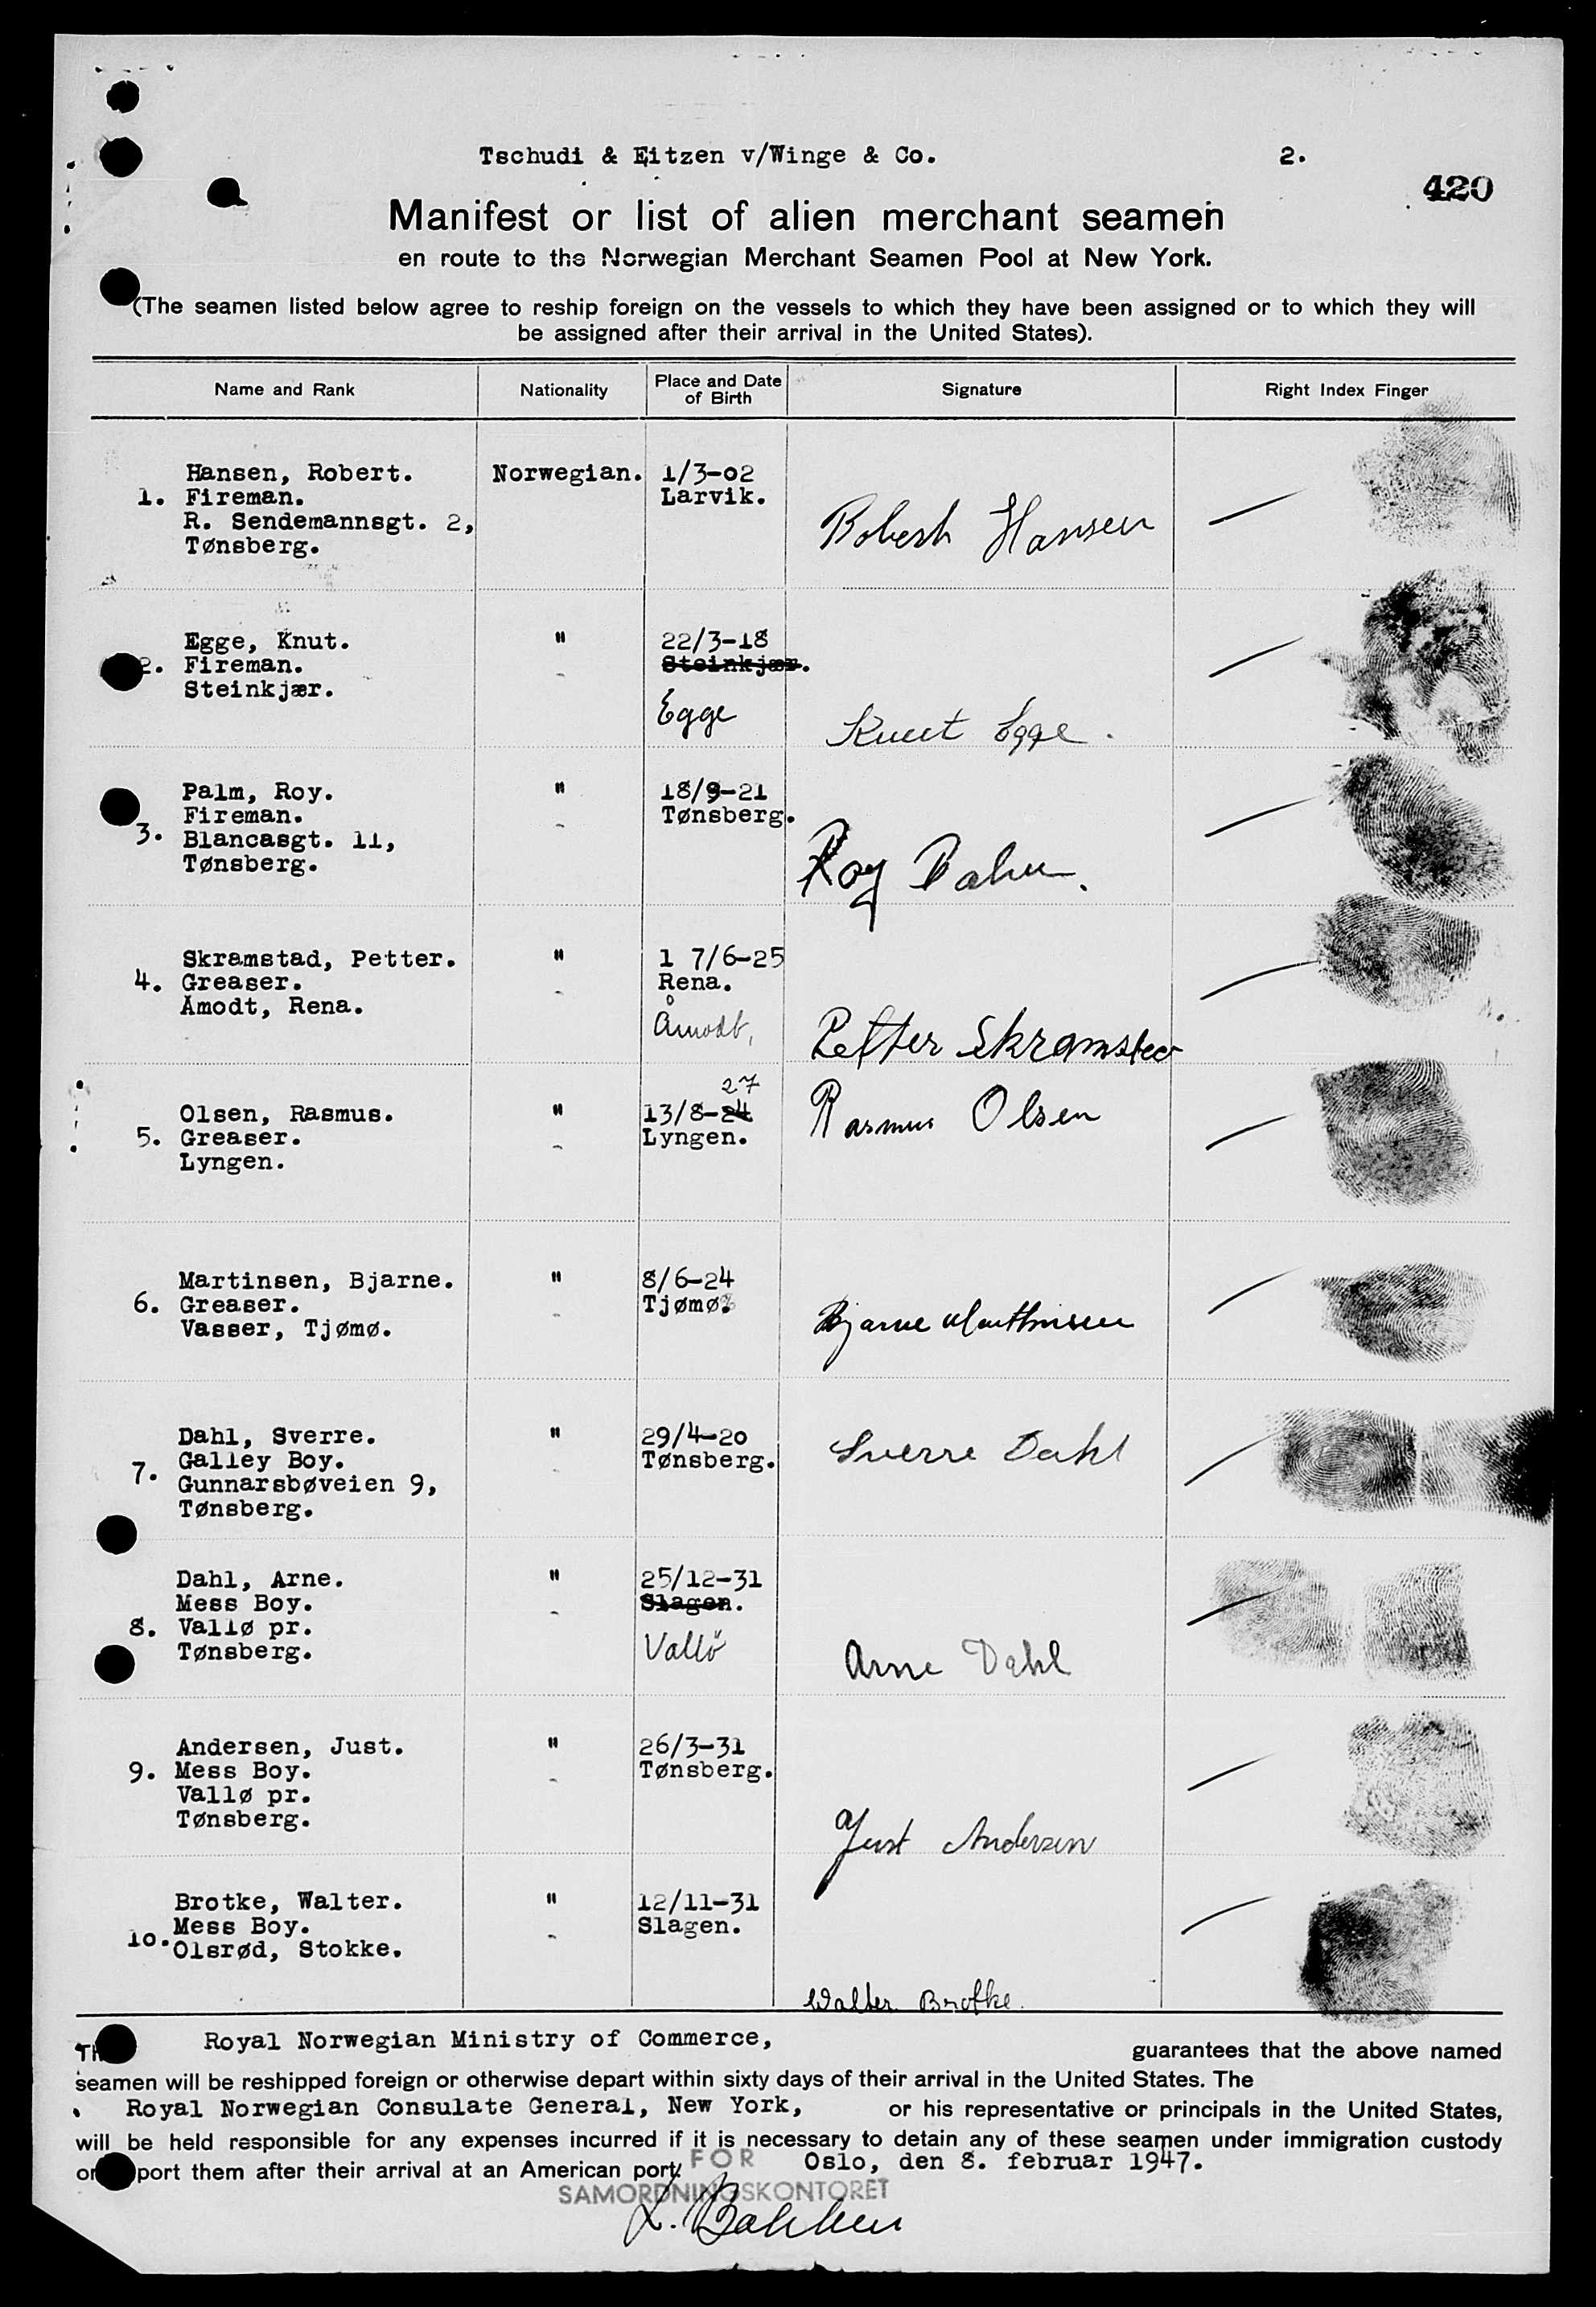 Tschudi & Eitzen v/Winge & Co. 2.
420
Manifest or list of alien merchant seamen
en route to the Norwegian Merchant Seamen Pool at New York.
(The seamen listed below agree to reship foreign on the vessels to which they have been assigned or to which they will
be assigned after their arrival in the United States).
Name and Rank Nationality Place and Date of Birth Signature Right Index Finger
Hansen, Robert. Norwegian. 1/3-02
1. Fireman. Larvik.
R. Sendemannsgt. 2,
Tønsberg.
Robert Hansen
Egge, Knut. " 22/3-18
2. Fireman. Steinkjær.
Steinkjær.
Egge
Knut Egge.
Palm, Roy. " 18/9-21
Fireman. Tønsberg.
3. Blancasgt. 11,
Tønsberg.
Roy Palm.
Skramstad, Petter. " 1 7/6-25
4. Greaser. Rena.
Åmodt, Rena. Åmodt,
Petter Skramstad
27
Olsen, Rasmus. " 13/8-24 Rasmus Olsen
5. Greaser. Lyngen.
Lyngen.
Martinsen, Bjarne. " 8/6-24
6. Greaser. Tjømø.
Vasser, Tjømø. Bjarne Marthinsen
Dahl, Sverre. " 29/4-20 Sverre Dahl
Galley Boy. Tønsberg.
7. Gunnarsbøveien 9,
Tønsberg.
Dahl, Arne. " 25/12-31
Mess Boy. Slagen.
8. Vallø pr.
Tønsberg. Vallö Arne Dahl
Andersen, Just. " 26/3-31
9. Mess Boy. Tønsberg.
Vallø pr.
Tønsberg.
Just Andersen
Brotke, Walter. " 12/11-31
10. Mess Boy. Slagen.
Olsrød, Stokke.
Walter Brotke.
Royal Norwegian Ministry of Commerce, guarantees that the above named
seamen will be reshipped foreign or otherwise depart within sixty days of their arrival in the United States. The
Royal Norwegian Consulate General, New York, or his representative or principals in the United States,
will be held responsible for any expenses incurred if it is necessary to detain any of these seamen under immigration custody
port them after their arrival at an American port.
FOR Oslo, den 8. februar 1947.
SAMORDNINGSKONTORET
L. Bakken